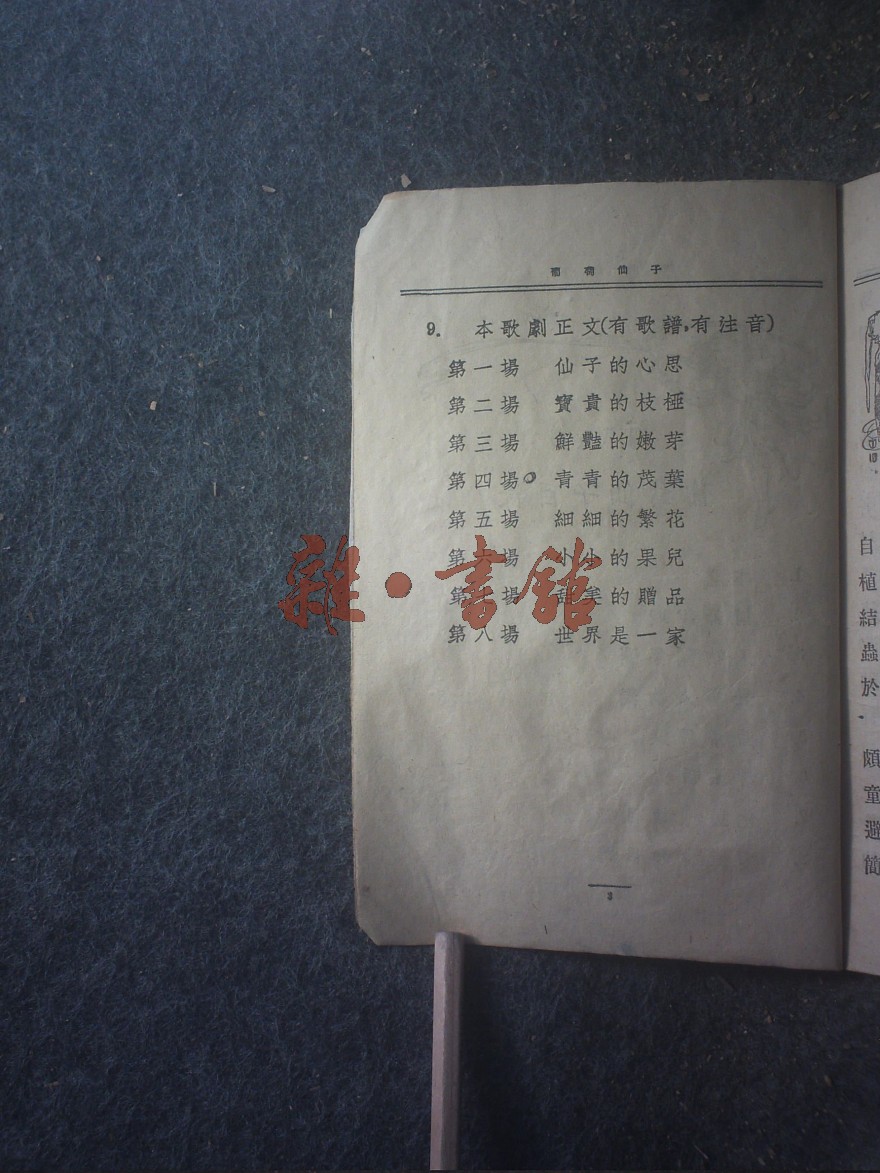 葡萄仙子
9. 本歌劇正文(有歌譜,有注音)
第一場 仙子的心思
第二場 寶貴的枝極
第三場 鮮豔的嫩芽
第四場 青青的茂葉
第五場 細細的繁花
第六場 小小的果兒
第七場 甜美的贈品
第八場 世界是一家
3
雜·書館
自
植
結
蟲
於
頗
童
避
簡